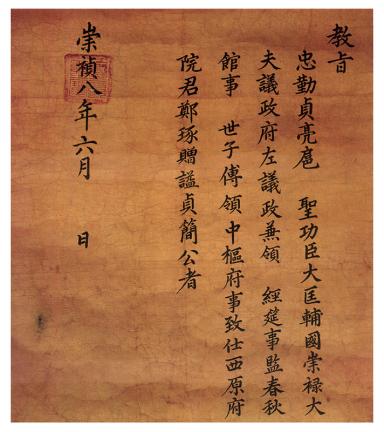 教旨
忠勤貞亮扈 聖功臣大匡輔國崇禄大
夫議政府左議政兼領 經筵事監春秋
館事 世子傅領中樞府事致仕西原府
院君鄭琢贈謚貞簡公者
崇禎八年六月 日